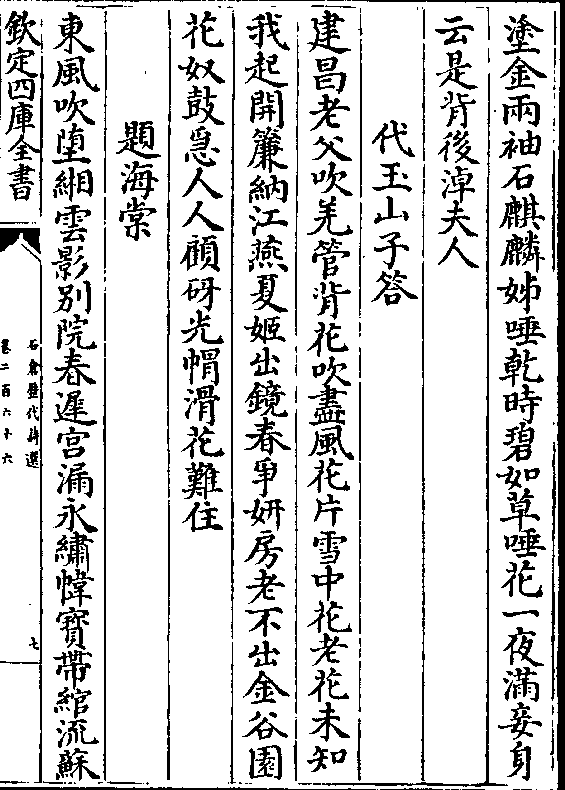 塗金兩袖石麒麟姊唾乾時碧如草唾花一夜滿妾身
云是背後淖夫人
代玉山子答
建昌老父吹羌管背花吹盡風花片雪中花老花未知
我起開簾納江燕夏姬出鏡春爭妍房老不出金谷園
花奴鼓急人人顧砑光㡌滑花難住
題海棠
東風吹堕緗雲影别院春遲宫漏永繡幃寶帶綰流蘇
欽定四庫全書
石倉歴代詩選
卷二百六十六
七